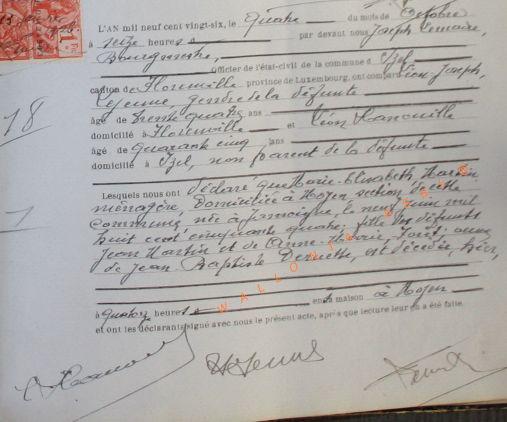 L'AN mil neuf cent vingt-six, le quatre du mois de Octobre
à seize heures par devant nous Joseph Lemaire,
Bourgmestre,
Officier de l'état-civil de la commune d'Izel
canton de Florenville province de Luxembourg, ont comparu Léon Joseph,
Lejeune, gendre de la défunte
âgé de trente quatre ans
domicilié à Florenville et Léon Hanouille
âgé de quarante cinq ans
domicilié à Izel, non parent de la défunte
Lesquels nous ont déclaré que Marie-Elisabeth Martin
ménagère, domiciliée à Moyen section de cette
commune, née à Jamoigne, le neuf juin mil
huit cent cinquante quatre, fille des défunts
Jean Martin et de Anne-Marie, veuve
de Jean Baptiste est décédée, hier,
à quatorze heures en sa maison à Moyen
et ont les déclarants signé avec nous le présent acte, après que lecture leur en a été faite.
18
1
1 Fr
WALLONIA